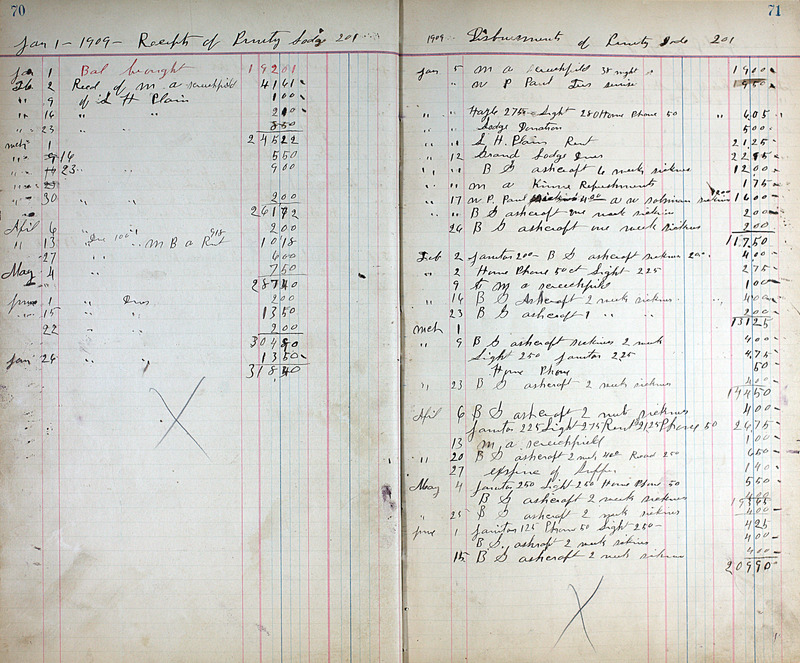 70
Jan 1 - 1909 - Receipts of Lodge 201
Jan 1 Bal brought 19201
Feb 2 Recd of M A Scruchfield 4161
" 9 of L H Plain 100
" 16 " " 200
" 23 " " 850
Mch 1 24522
" 16 550
" 23 900
" 30 200
26172
April 6 200
" 13 M B A Rent 918 1018
" 27 " 600
May 4 " 750
28740
June 1 " Dues 200
" 15 " 1350
22 " " 200
30490
Jan 26 " " 1350
31840
71
1909 Disbursments of 201
Jan 5 M A Scruchfield 38 night 1900
" " W P Paul 950
" " 275 Light 280 Home Phone 50 " 605
" " Lodge Donation 500
" " L H. Plain Rent 2125
" 12 Grand Lodge Dues 2215
" " B S ashcraft 6 weeks sickness 1200
" " M a Kinne Refreshments 175
" 17 W P. Paul 400 a w Robinson sickness 1600
" " B S ashcraft one week sickness 200
26 B S ashcraft one week sickness 200
11750
Feb 2 Janitor 200 - B S ashcraft sickness 200 400
" 2 Home Phone 50ct Light 225 275
9 to M a Scruchfield 100
" 16 B S Ashcraft 2 weeks sickness 400
23 B S ashcraft 1 " " 200
Mch 1 13125
" 9 B S ashcraft sickness 2 week 400
Light 250 Janitor 225 475
Home Phone 50
" 23 B S ashcraft 2 weeks sickness 400
14450
April 6 B S ashcraft 2 week sickness 400
Janitor 225 Light 275 Rent 2125 Phone 50 2675
13 M, a Scruchfield 100
" 20 B S ashcraft 2 week 400 250 650
27 expense of 140
May 4 Janitor 250 Light 250 Home Phone 50 550
B S ashcraft 2 weeks sickness 400
" 25 B S ashcraft 2 week sickness 400
June 1 Janitor 125 Phone 50 Light 250 425
B S. ashcraft 2 week sickness 400
15 B S ashcraft 2 week sickness 400
20990